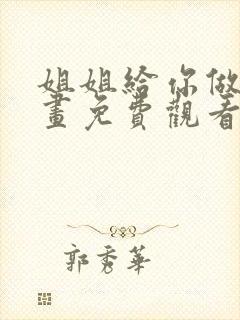 姐姐給你做
畫免費觀看
郭秀華